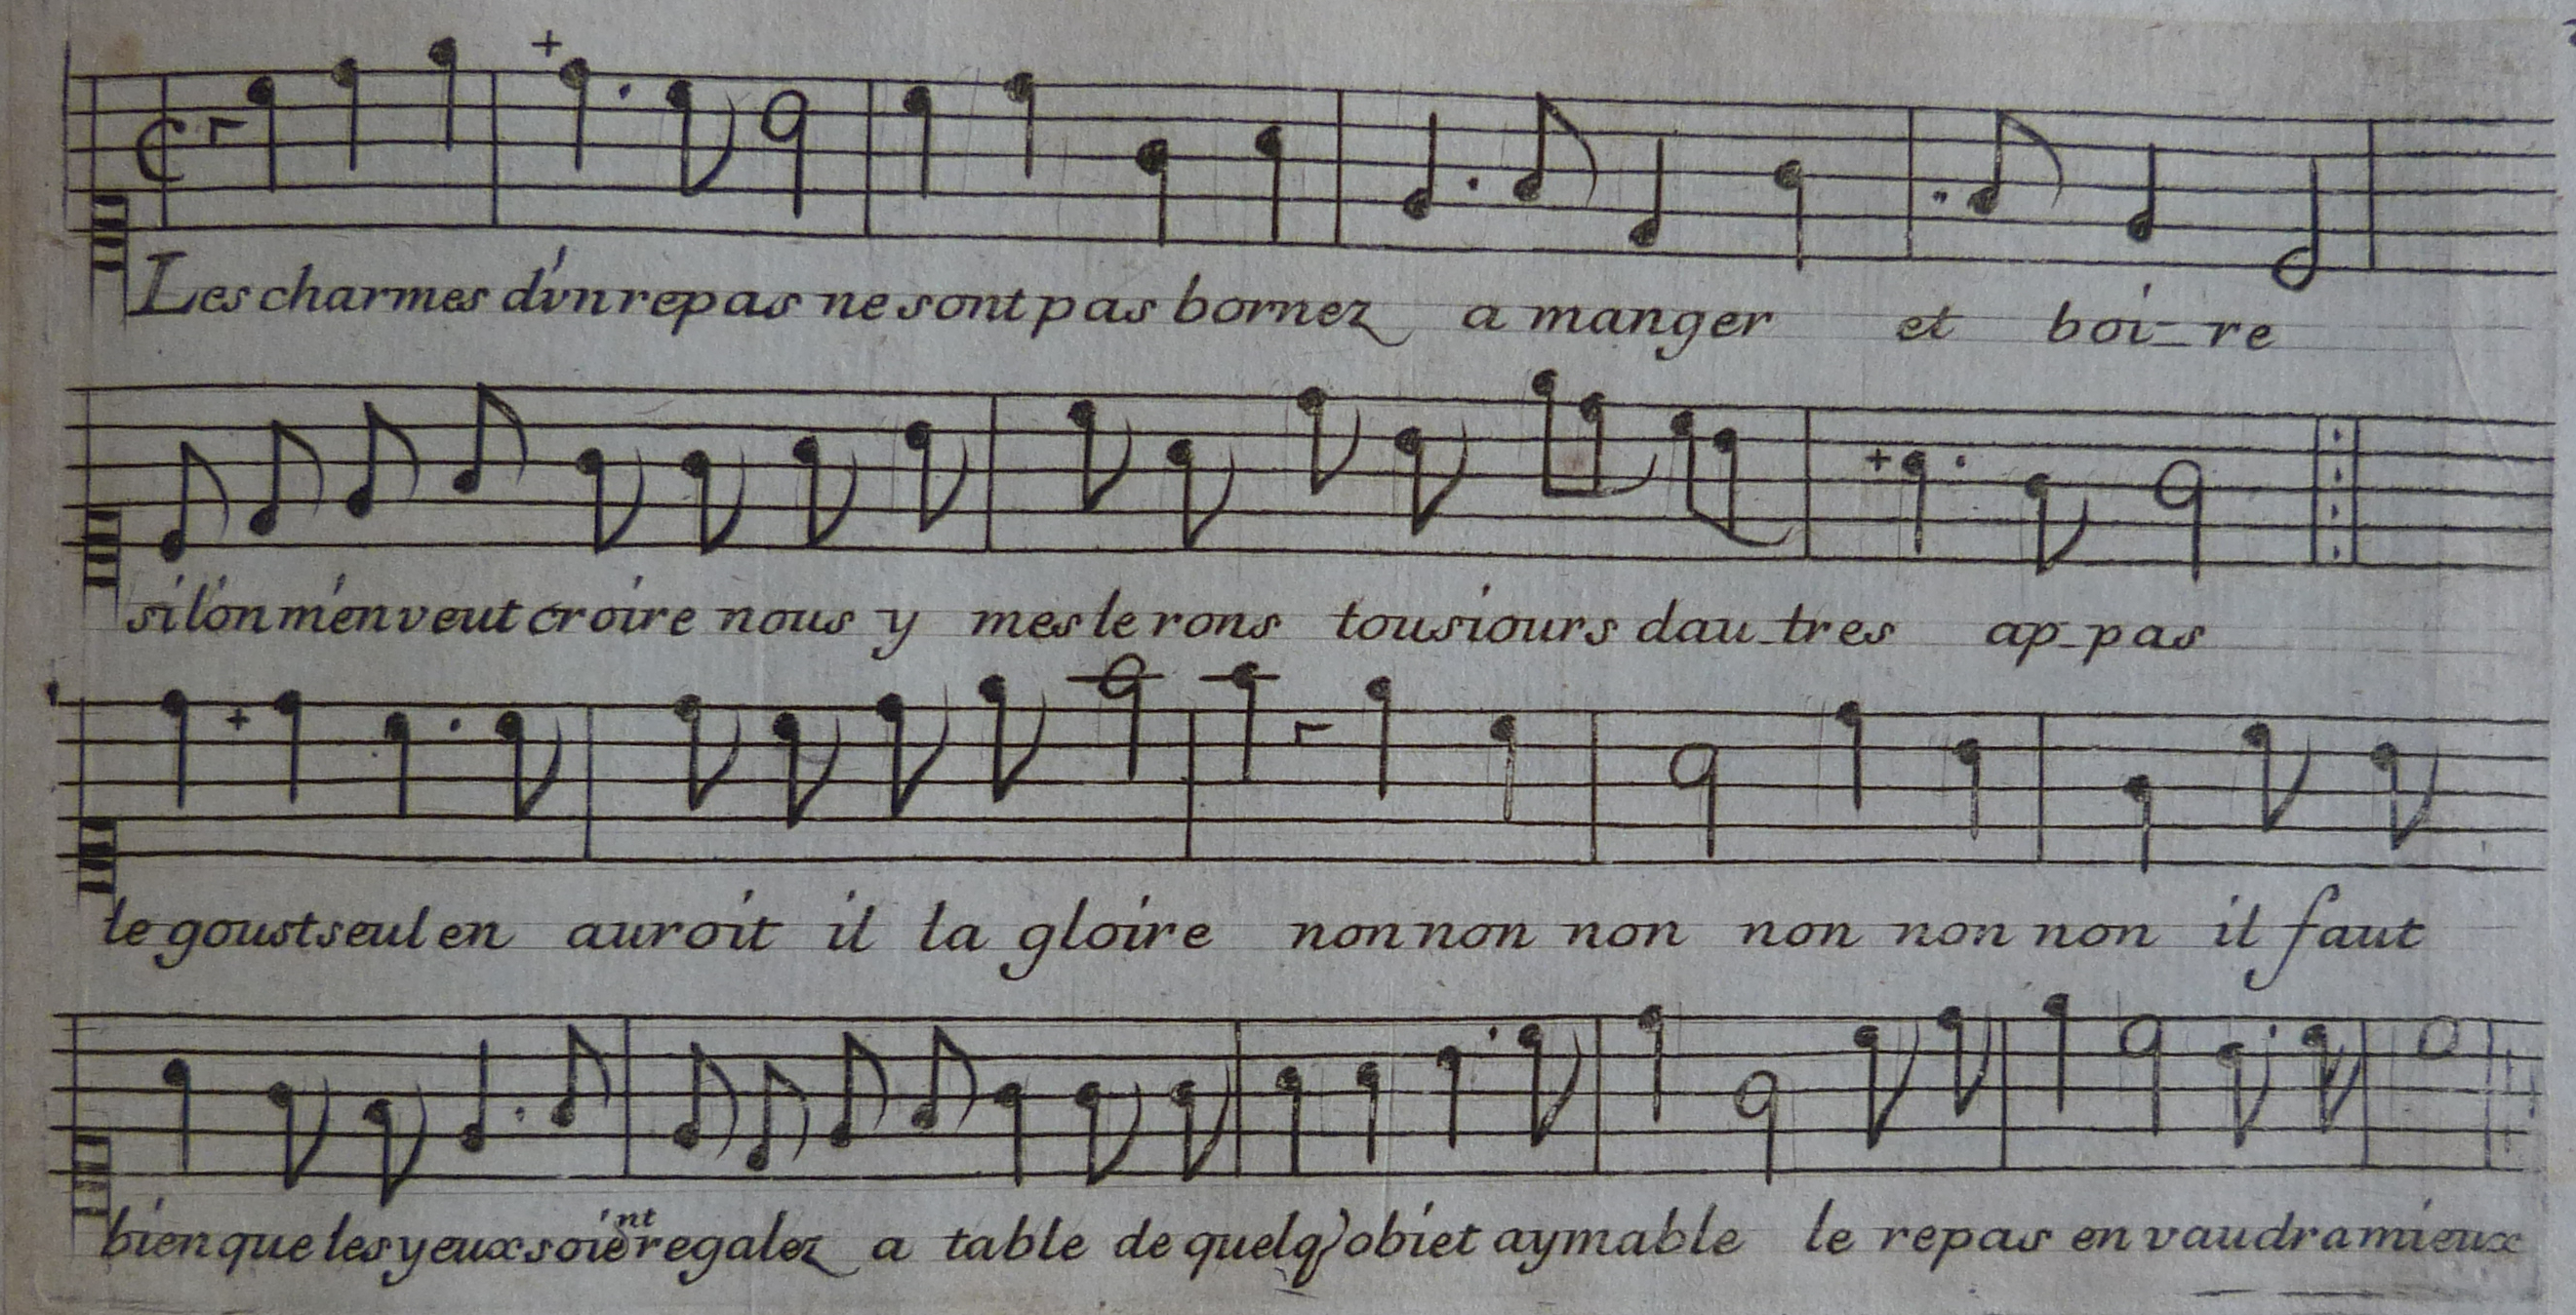 Les charmes d'vn repas ne sont pas bornez a manger et boi-re
si l'on m'en veut croire nous y mesle rons tousiours dau-tres ap-pas
le goust seul en auroit il la gloire non non non non non non il faut
bien que les yeux soient regalez a table de quelq' obiet aymable le repas en vaudra mieux